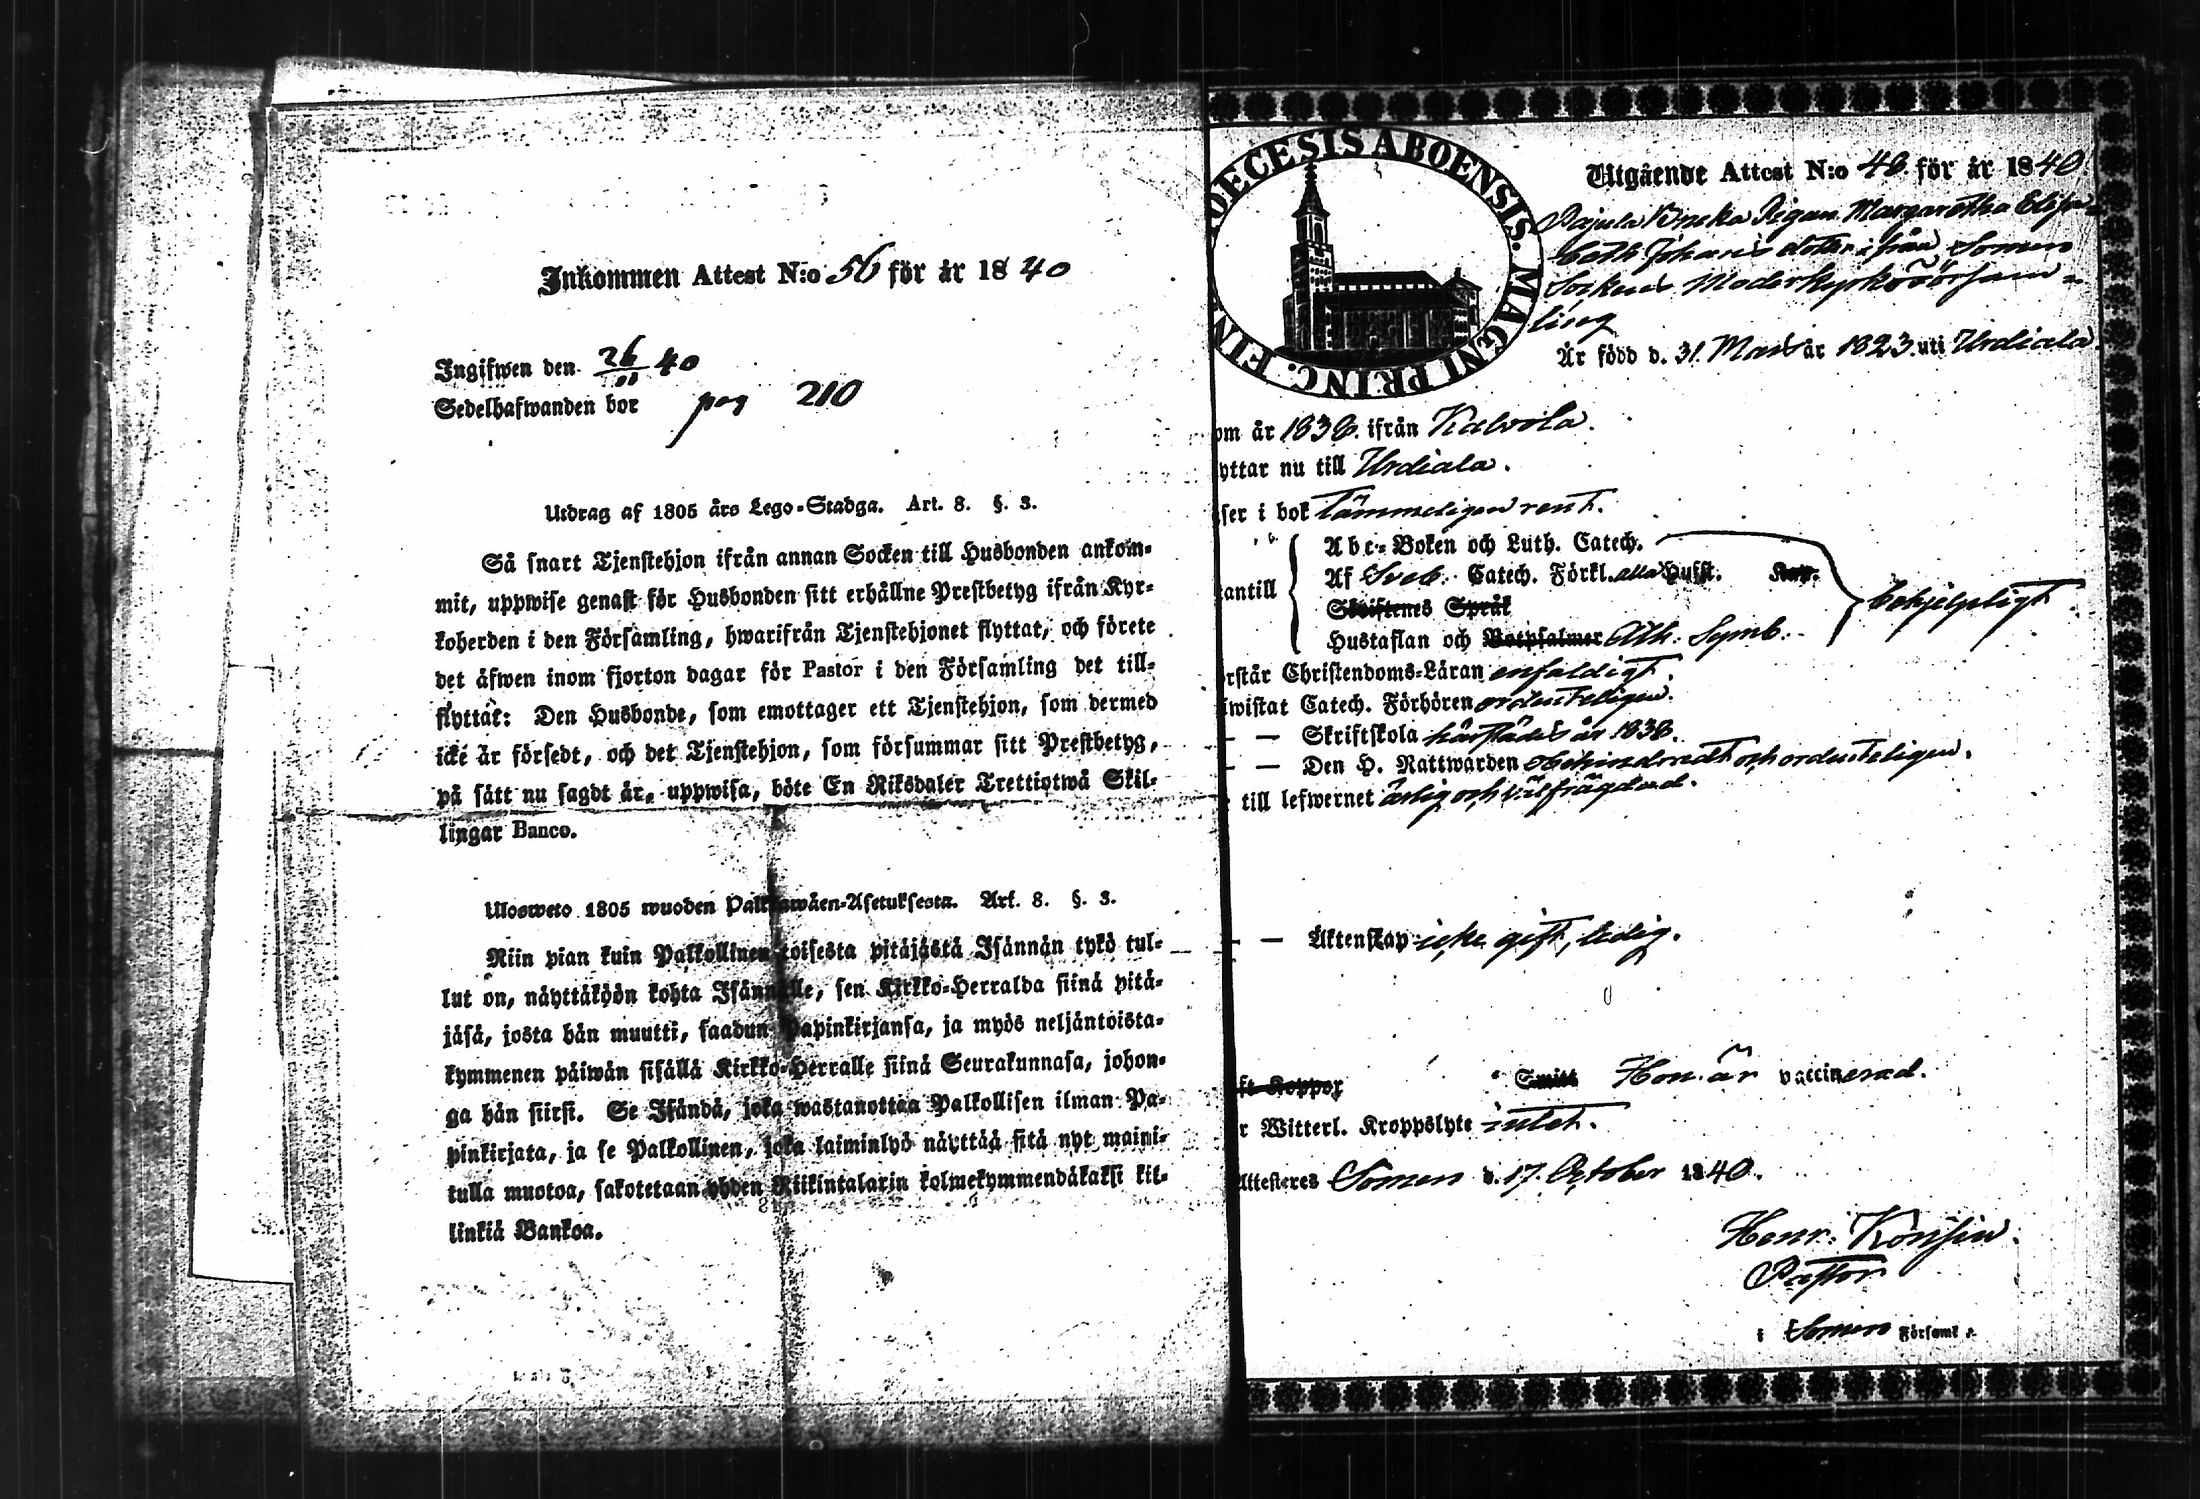 Inkommen Attest N:o 56 för år 1840
Ingifwen den 26/11 40
Sedelhafwanden bor pag 210
Utdrag af 1805 års Lego-Stadga. Art. 8. §. 3.
Så snart Tjenstehjon ifrån annan Socken till Husbonden ankom-
mit, uppwise genast för Husbonden sitt erhållne Prestbetyg ifrån Kyr-
koherden i den Församling, hwarifrån Tjenstehjonet flyttat, och förete
det äfwen inom fjorton dagar för Pastor i den Församling det till-
flyttat: Den Husbonde, som emottager ett Tjenstehjon, som dermed
icke är försedt, och det Tjenstehjon, som försummar sitt Prestbetyg,
på sätt nu sagdt är, uppwisa, böte En Riksdaler Trettiotwå Skil-
lingar Banco.
Ulosweto 1805 wuoden Palkkawäen-Asetuksesta. Art. 8. §. 3.
Niin pian kuin Palkollinen toisesta pitäjästä Isännän tykö tul-
lut on, näyttäköön kohta Isännälle, sen Kirkko-Herralda siinä pitä-
jäsä, josta hän muutti, saadun Papinkirjansa, ja myös neljäntoista-
kymmenen päiwän sisällä Kirkko-Herralle siinä Seurakunnasa, johon-
ga hän siirsi. Se Isändä, joka wastanottaa Palkollisen ilman Pa-
pinkirjata, ja se Palkollinen, joka laiminlyö näyttää sitä nyt maini-
tulla muotoa, sakotetaan yhden Riikintalarin kolmekymmendäkaksi kil-
linkiä Bankoa.
DIOECESIS ABOENSIS. MAGNI PRINC. FIN
Utgående Attest N:o 46 för år 1840
Pajula Encka Pigan Margaretha Elisa-
beth Johansdotter ifrån Somero
Sockens Moderkyrkoförsam-
ling
Är född d. 31 Mars år 1823 uti Urdiala.
om år 1838. ifrån Kalvola.
yttar nu till Urdiala.
ser i bok tämmeligen rent.
antill
Abc-Boken och Luth. Catech.
Af Sveb. Catech. Förkl. alla Hufst.
Skriftenes Språk
Hustaflan och Botpsalmer Ath. Symb.
behjelpligt
rstår Christendoms-Läran enfaldigt.
wistat Catech. Förhören ordenteligen.
— — Skriftskola härstädes år 1838.
— — Den H. Nattwarden obehindradt och ordenteligen.
till lefwernet ärlig och välfrägdad.
— — Äktenskap icke gift, ledig.
ft Koppor Smitt Hon är vaccinerad.
r Witterl. Kroppslyte intet.
Attesteres Somero d. 17. October 1840.
Henr. Konsin.
Pastor
i Somero Församl.